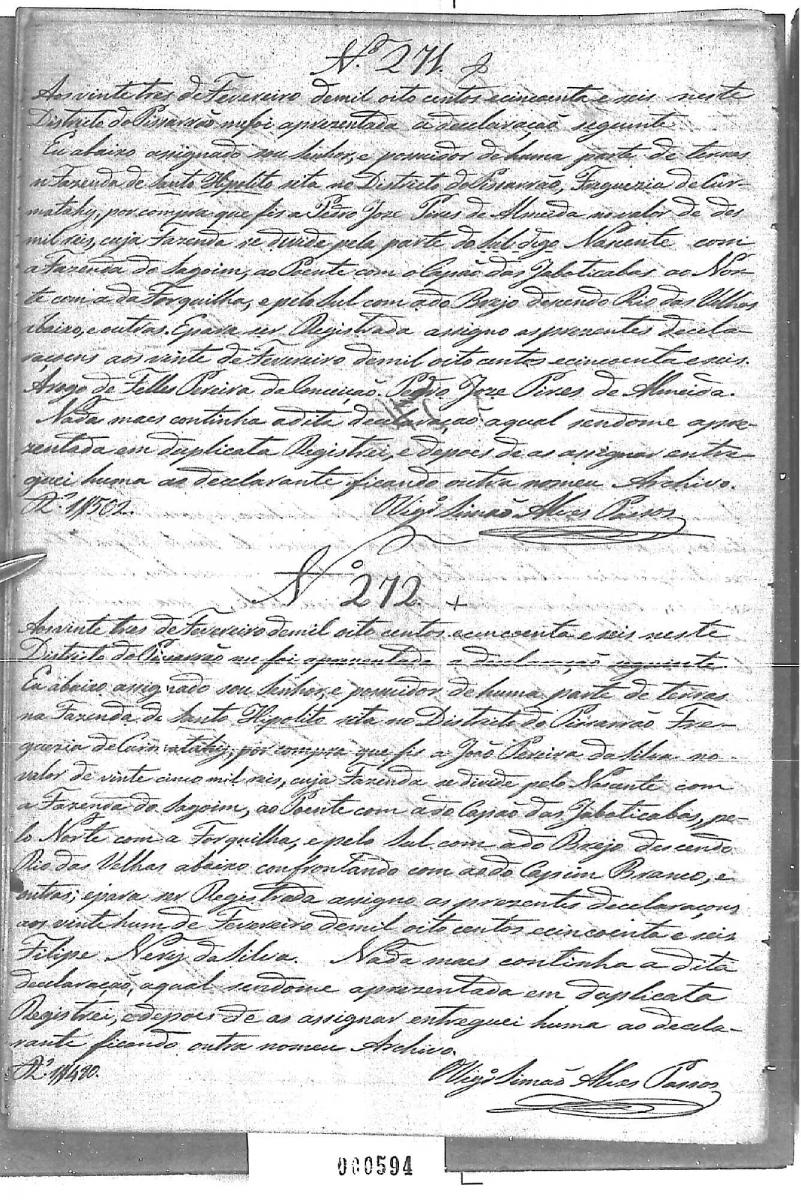 Nº 271.
Aos vinte tres de Fevereiro demil oito centos ecincoenta e seis neste
Districto do Pissarrão me foi aprezentada a declaração seguinte
Eu abaixo assignado sou Senhor, e possuidor de huma parte de terras
na Fazenda de Santo Hipolito sita no Districto do Pissarrão, Freguezia de Cur-
matahy, por compra que fis a Pedro Joze Pires de Almeida no valor de des
mil reis, cuja Fazenda se divide pela parte do Sul digo Nascente com
a Fazenda do Sagoim, ao Poente com o Capão das Jaboticabas ao Nor-
te com a da Forquilha, e pelo Sul com ado Brejo descendo Rio das Velhas
abaixo, e outras. E para ser Registrada assigno as prezentes decla-
raçoens aos vinte de Fevereiro demil oito centos ecincoenta e seis.
Arogo de Felles Pereira da Conceicão. Pedro Joze Pires de Almeida.
Nada mais continha adita declaração aqual sendome apre-
zentada em duplicata Registrei, e depois de as assignar entre-
guei huma ao declarante ficando outra nomeu Archivo.
Rs. 1$502. Vigº Simão Alves Passos
Nº 272
Aos vinte tres de Fevereiro demil oito centos ecincoenta e seis neste
Districto do Pissarrão me foi aprezentada a declaração seguinte.
Eu abaixo assignado sou Senhor, e possuidor de huma parte de terras
na Fazenda de Santo Hipolito sita no Districto do Pissarrão Fre-
guezia de Curmatahy, por compra que fis a João Pereira da Silva no
valor de vinte cinco mil reis, cuja Fazenda se divide pelo Nascente com
a Fazenda do Sagoim, ao Poente com ado Capão das Jaboticabas, pe-
lo Norte com a Forquilha, e pelo Sul com ado Brejo descendo
Rio das Velhas abaixo confrontando com a do Capim Branco, e
outras; e para ser Registrada assigno as prezentes declaraçoens
aos vinte hum de Fevereiro demil oito centos ecincoenta e seis
Filipe Nery da Silva. Nada mais continha a dita
declaração, aqual sendome aprezentada em duplicata
Registrei, e depois de as assignar entreguei huma ao decla-
rante ficando outra nomeu Archivo.
Rs. 1$480. Vigº Simão Alves Passos
000594